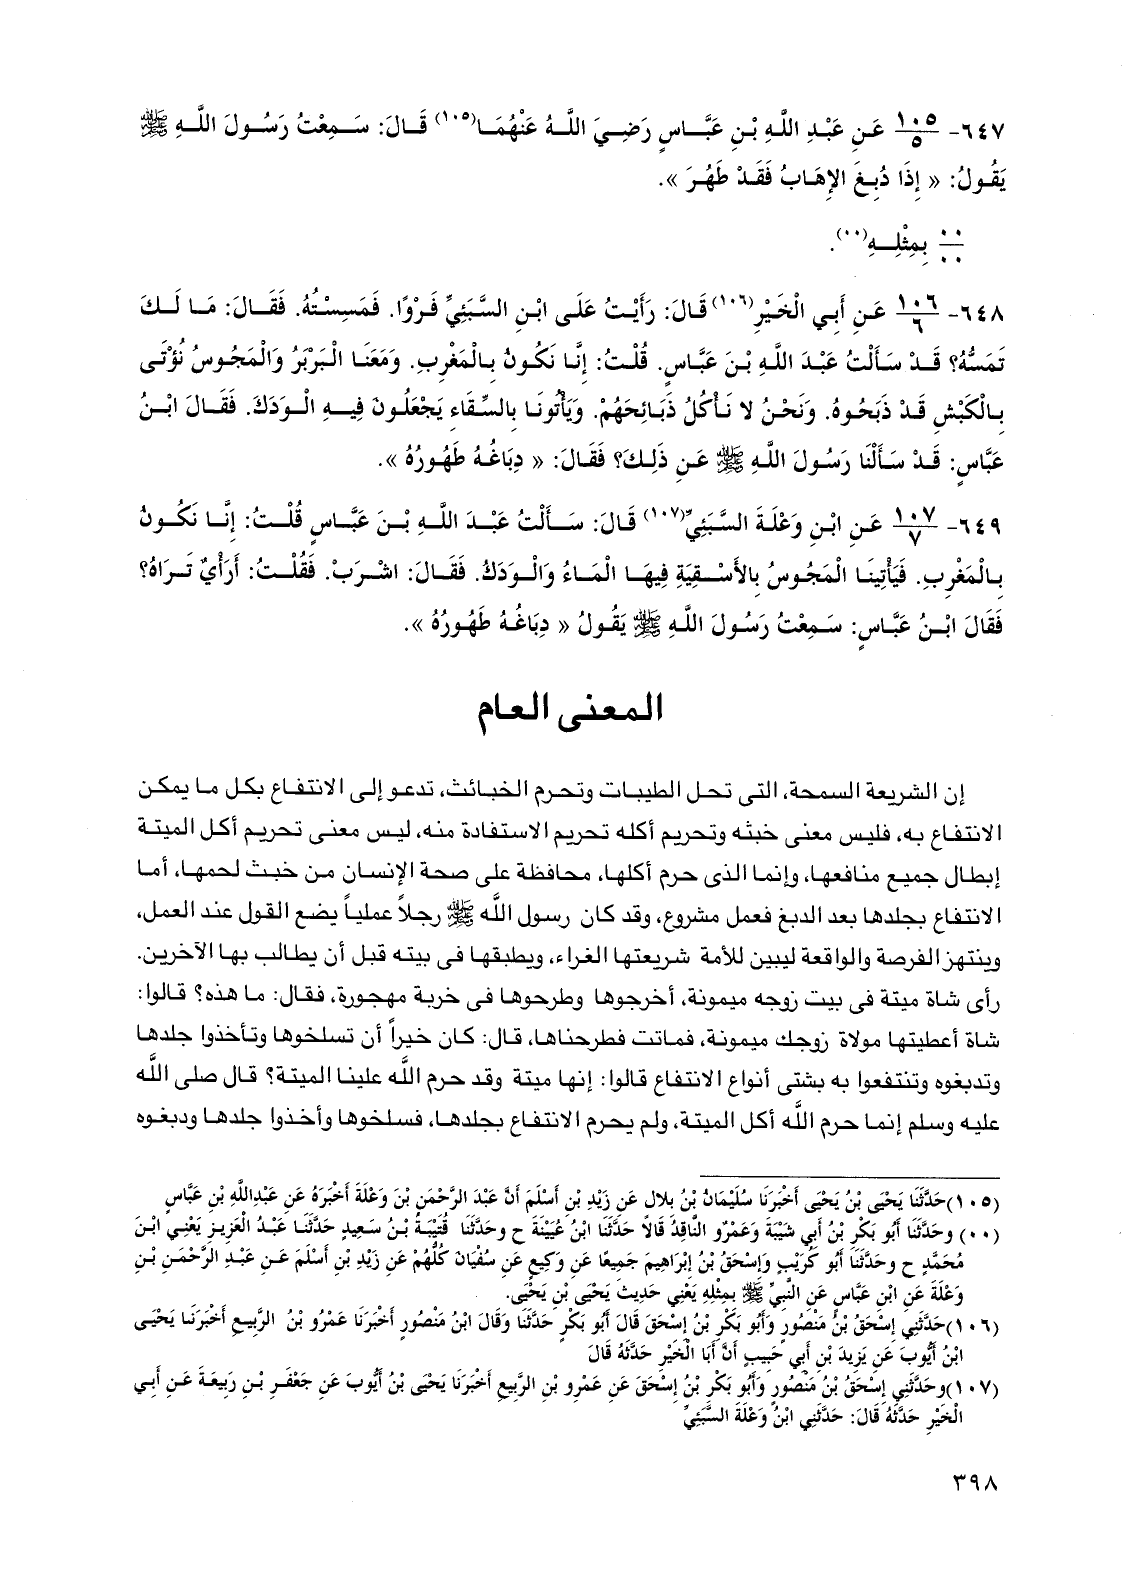 ٦٤٧- ١٠٥/٥ عَنِ عَبْدِ اللَّهِ بْنِ عَبَّاسٍ رَضِيَ اللَّهُ عَنْهُمَا(١٠٥) قَالَ: سَمِعْتُ رَسُولَ اللَّهِ ﷺ
يَقُولُ: « إِذَا دُبِغَ الإِهَابُ فَقَدْ طَهُرَ ».
٠٠/٠٠ بِمِثْلِهِ(٠٠).
٦٤٨- ١٠٦/٦ عَنِ أَبِي الْخَيْرِ(١٠٦) قَالَ: رَأَيْتُ عَلَى ابْنِ السَّبَئِيِّ فَرْوًا. فَمَسِسْتُهُ. فَقَالَ: مَا لَكَ
تَمَسُّهُ؟ قَدْ سَأَلْتُ عَبْدَ اللَّهِ بْنَ عَبَّاسٍ. قُلْتُ: إِنَّا نَكُونُ بِالْمَغْرِبِ. وَمَعَنَا الْبَرْبَرُ وَالْمَجُوسُ نُؤْتَى
بِالْكَبْشِ قَدْ ذَبَحُوهُ. وَنَحْنُ لا نَأْكُلُ ذَبَائِحَهُمْ. وَيَأْتُونَا بِالسِّقَاءِ يَجْعَلُونَ فِيهِ الْوَدَكَ. فَقَالَ ابْنُ
عَبَّاسٍ: قَدْ سَأَلْنَا رَسُولَ اللَّهِ ﷺ عَنِ ذَلِكَ؟ فَقَالَ: « دِبَاغُهُ طَهُورُهُ ».
٦٤٩- ١٠٧/٧ عَنِ ابْنِ وَعْلَةَ السَّبَئِيِّ(١٠٧) قَالَ: سَأَلْتُ عَبْدَ اللَّهِ بْنَ عَبَّاسٍ قُلْتُ: إِنَّا نَكُونُ
بِالْمَغْرِبِ. فَيَأْتِينَا الْمَجُوسُ بِالأَسْقِيَةِ فِيهَا الْمَاءُ وَالْوَدَكُ. فَقَالَ: اشْرَبْ. فَقُلْتُ: أَرَأْيٌ تَرَاهُ؟
فَقَالَ ابْنُ عَبَّاسٍ: سَمِعْتُ رَسُولَ اللَّهِ ﷺ يَقُولُ « دِبَاغُهُ طَهُورُهُ ».
المعنى العام
إن الشريعة السمحة، التى تحل الطيبات وتحرم الخبائث، تدعو إلى الانتفاع بكل ما يمكن
الانتفاع به، فليس معنى خبثه وتحريم أكله تحريم الاستفادة منه، ليس معنى تحريم أكل الميتة
إبطال جميع منافعها، وإنما الذى حرم أكلها، محافظة على صحة الإنسان من خبث لحمها، أما
الانتفاع بجلدها بعد الدبغ فعمل مشروع، وقد كان رسول اللَّه ﷺ رجلاً عملياً يضع القول عند العمل،
وينتهز الفرصة والواقعة ليبين للأمة شريعتها الغراء، ويطبقها فى بيته قبل أن يطالب بها الآخرين.
رأى شاة ميتة فى بيت زوجه ميمونة، أخرجوها وطرحوها فى خربة مهجورة، فقال: ما هذه؟ قالوا:
شاة أعطيتها مولاة زوجك ميمونة، فماتت فطرحناها، قال: كان خيراً أن تسلخوها وتأخذوا جلدها
وتدبغوه وتنتفعوا به بشتى أنواع الانتفاع قالوا: إنها ميتة وقد حرم اللَّه علينا الميتة؟ قال صلى اللَّه
عليه وسلم إنما حرم اللَّه أكل الميتة، ولم يحرم الانتفاع بجلدها، فسلخوها وأخذوا جلدها ودبغوه
(١٠٥)حَدَّثَنَا يَحْيَى بْنُ يَحْيَى أَخْبَرَنَا سُلَيْمَانُ بْنُ بِلالٍ عَنِ زَيْدِ بْنِ أَسْلَمَ أَنَّ عَبْدَ الرَّحْمَنِ بْنَ وَعْلَةَ أَخْبَرَهُ عَنِ عَبْدِاللَّهِ بْنِ عَبَّاسٍ
(٠٠) وحَدَّثَنَا أَبُو بَكْرِ بْنُ أَبِي شَيْبَةَ وَعَمْرٌو النَّاقِدُ قَالاَ حَدَّثَنَا ابْنُ عُيَيْنَةَ ح وحَدَّثَنَا قُتَيْبَةُ بْنُ سَعِيدٍ حَدَّثَنَا عَبْدُ الْعَزِيزِ يَعْنِي ابْنَ
مُحَمَّدٍ ح وحَدَّثَنَا أَبُو كُرَيْبٍ وَإِسْحَقُ بْنُ إِبْرَاهِيمَ جَمِيعًا عَنِ وَكِيعٍ عَنِ سُفْيَانَ كُلُّهُمْ عَنِ زَيْدِ بْنِ أَسْلَمَ عَنِ عَبْدِ الرَّحْمَنِ بْنِ
وَعْلَةَ عَنِ ابْنِ عَبَّاسٍ عَنِ النَّبِيِّ ﷺ بِمِثْلِهِ يَعْنِي حَدِيثَ يَحْيَى بْنِ يَحْيَى.
(١٠٦)حَدَّثَنِي إِسْحَقُ بْنُ مَنْصُورٍ وَأَبُو بَكْرِ بْنُ إِسْحَقَ قَالَ أَبُو بَكْرٍ حَدَّثَنَا وَقَالَ ابْنُ مَنْصُورٍ أَخْبَرَنَا عَمْرُو بْنُ الرَّبِيعِ أَخْبَرَنَا يَحْيَى
ابْنُ أَيُّوبَ عَنِ يَزِيدَ بْنِ أَبِي حَبِيبٍ أَنَّ أَبَا الْخَيْرِ حَدَّثَهُ قَالَ
(١٠٧)وحَدَّثَنِي إِسْحَقُ بْنُ مَنْصُورٍ وَأَبُو بَكْرِ بْنُ إِسْحَقَ عَنِ عَمْرِو بْنِ الرَّبِيعِ أَخْبَرَنَا يَحْيَى بْنُ أَيُّوبَ عَنِ جَعْفَرِ بْنِ رَبِيعَةَ عَنِ أَبِي
الْخَيْرِ حَدَّثَهُ قَالَ: حَدَّثَنِي ابْنُ وَعْلَةَ السَّبَئِيُّ
٣٩٨